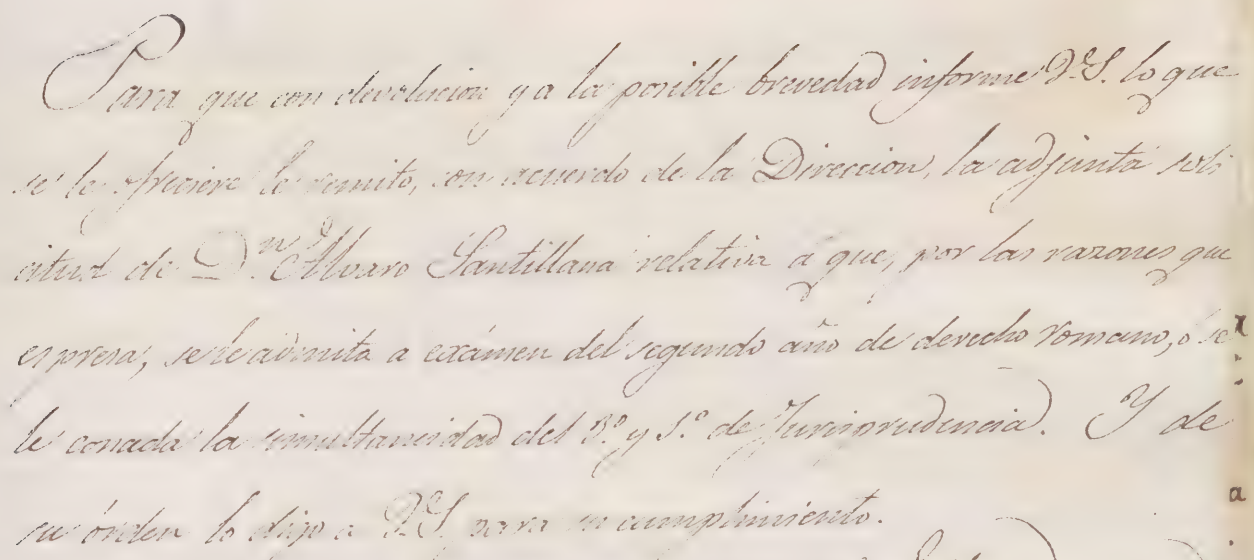 Para que con devolucion y a la posible brevedad informe V.S. lo que
se le ofreciere le remito, con acuerdo de la Direccion, la adjunta soli
citud de Dn. Alvaro Santillana relativa a que, por las razones que
espresa, se le admita a exámen del segundo año de derecho romano, o se
le conceda la simultaneidad del 3º y de Jurisprudencia. Y de
su órden lo digo a V.S. para su cumplimiento.